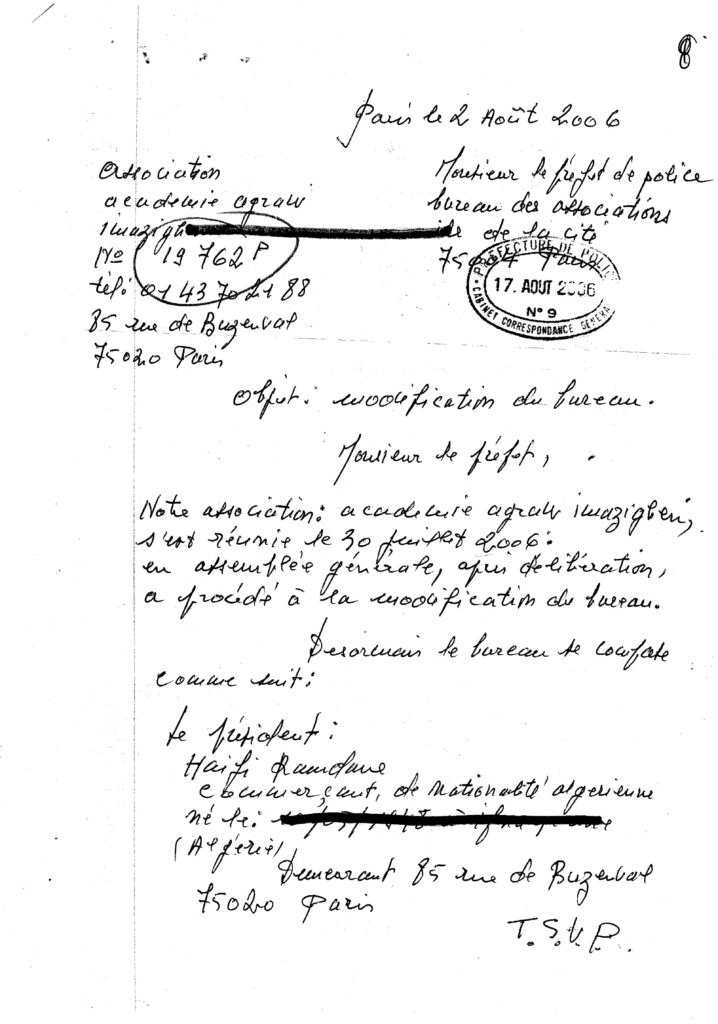 8
Paris le 2 Août 2006
Association
academie agraw
imazigh
No 19 762 P
tél: 01 43 70 21 88
85 rue de Buzenval
75020 Paris
Monsieur le préfet de police
bureau des associations
ile de la cité
Paris
PREFECTURE DE POLICE
17. AOUT 2006
N° 9
CABINET CORRESPONDANCE
Objet: modification du bureau.
Monsieur le préfet,
Notre association: academie agraw imazighen,
s'est réunie le 30 juillet 2006.
en assemblée générale, après délibération,
a procédé à la modification du bureau.
Desormais le bureau se compose
comme suit:
Le président:
Haifi Ramdane
Commerçant, de nationalité algerienne
né le:
(Algérie)
Demeurant 85 rue de Buzenval
75020 Paris
T.S.V.P.